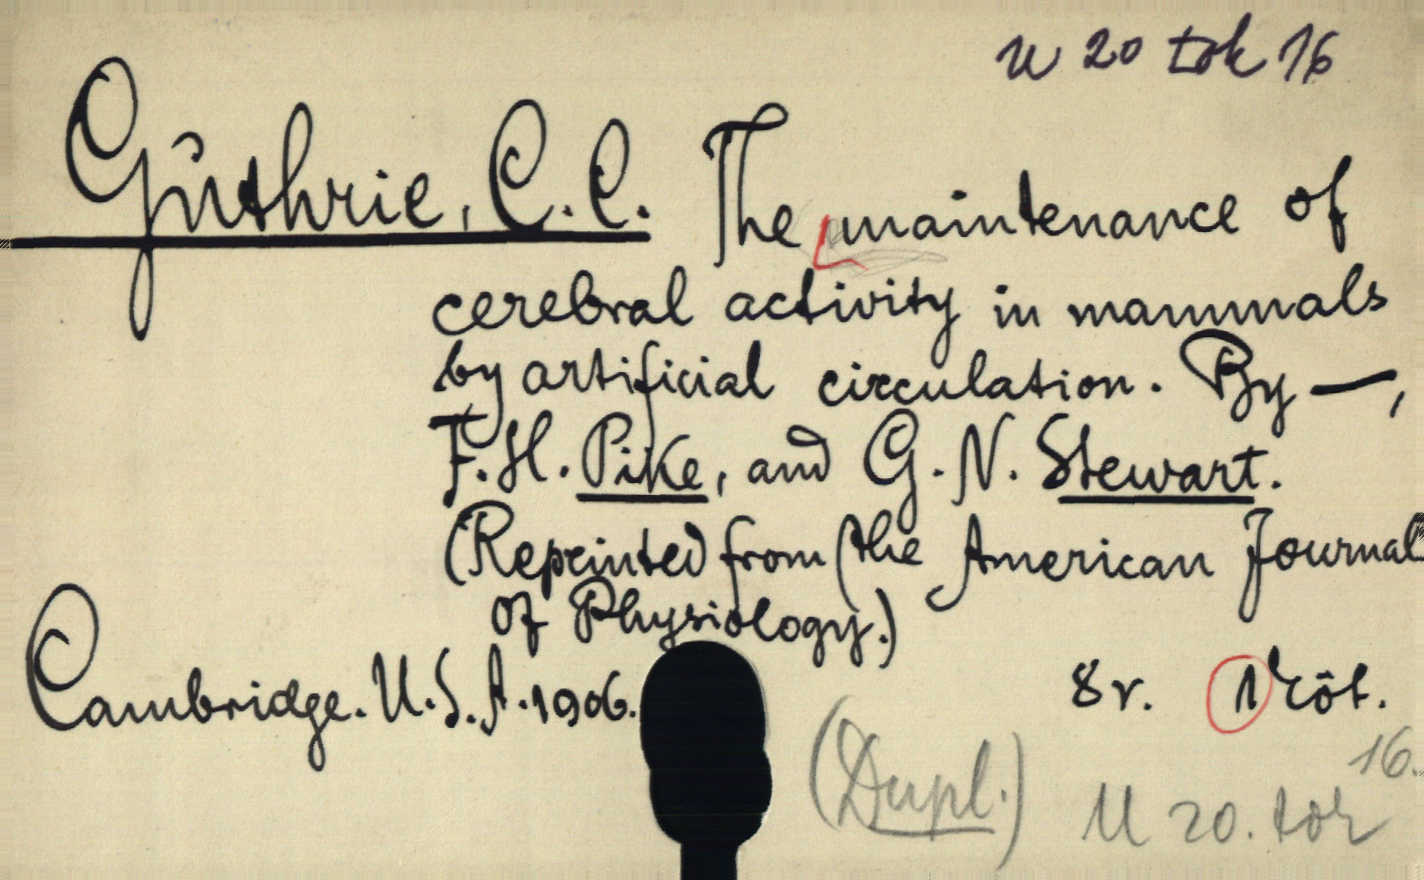 U 20 tok 16
Guthrie, C. C. The maintenance of
cerebral activity in mammals
by artificial circulation. By —,
F. H. Pike, and G. N. Stewart.
(Reprinted from the American Journal
of Physiology.)
Cambridge. U. S. A. 1906. 8r. 1 köt.
(Dupl.) U 20. tok 16.